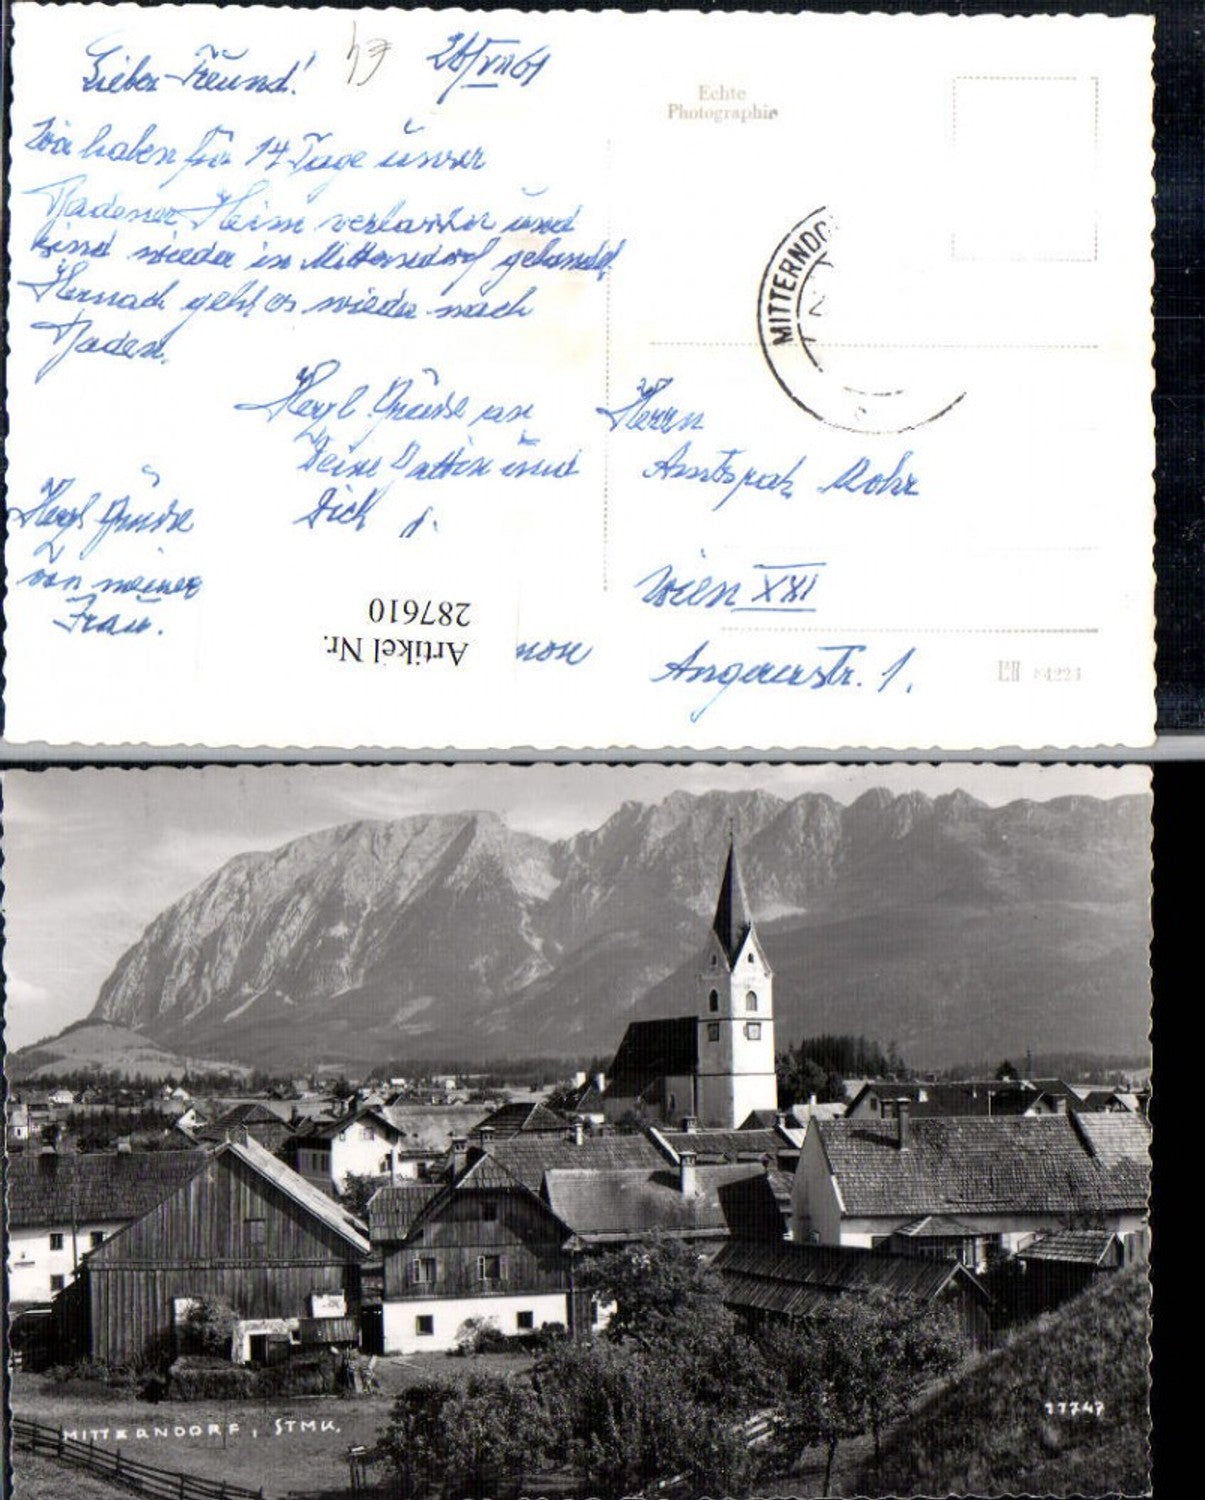 Lieber Freund! 26/VII 61
Wir haben für 14 Tage unser
Badener Heim verlassen und
sind wieder in Mitterndorf gelandet.
Hernach geht es wieder nach
Baden.
Herzl Grüsse an
Deine Gattin und
Dich
Herzl Grüsse
von meiner
Frau.
Artikel Nr.
287610
Echte
Photographie
MITTERNDO
Herrn
Amtsrat Mohr
Wien XXI
Angererstr. 1.
MITTERNDORF, STMK.